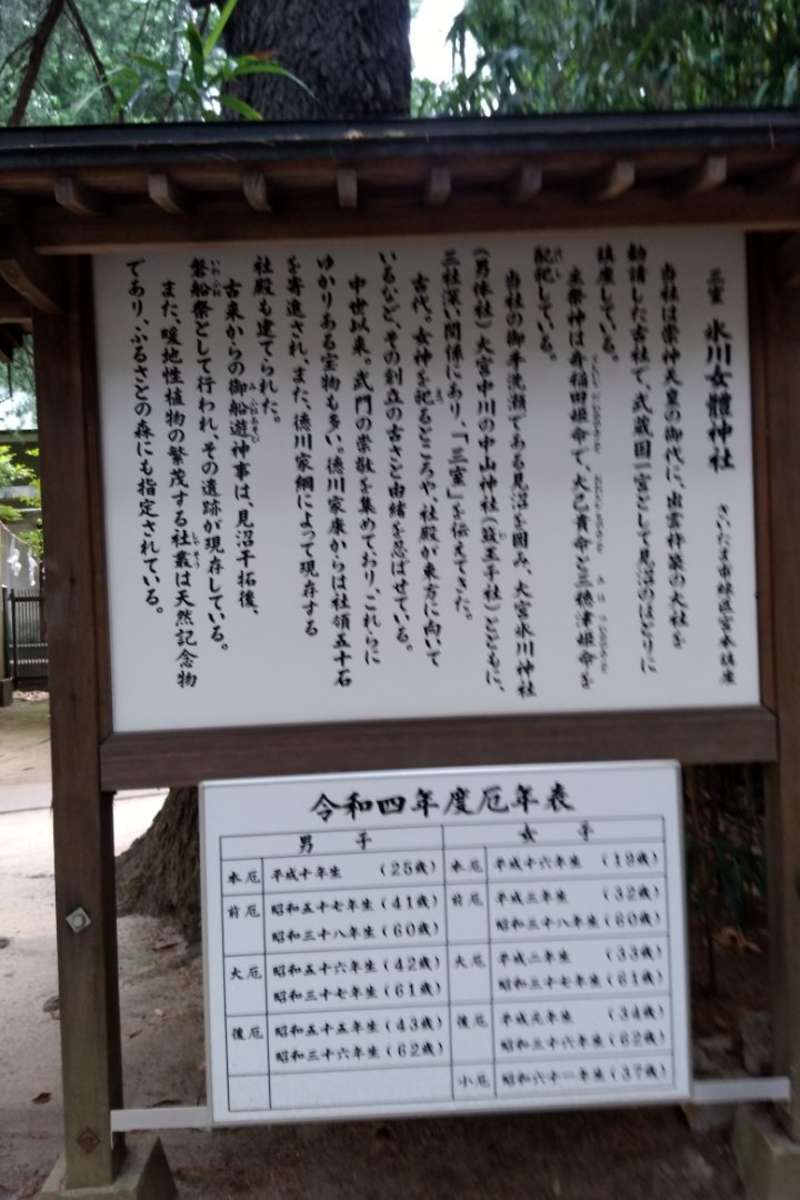 三室 氷川女體神社 さいたま市緑区宮本鎮座
当社は崇神天皇の御代に、出雲杵築の大社を
勧請した古社で、武蔵国一宮として見沼のほとりに
鎮座している。
主祭神は奇稲田姫命で、大己貴命と三穂津姫命を
配祀している。
当社の御手洗瀬である見沼を囲み、大宮氷川神社
(男体社)大宮中川の中山神社(簸王子社)とともに、
三社深い関係にあり、「三室」を伝えてきた。
古代。女神を祀るところや、社殿が東方に向いて
いるなど、その創立の古さと由緒を忍ばせている。
中世以来。武門の崇敬を集めており、これらに
ゆかりある宝物も多い。徳川家康からは社領五十石
を寄進され、また、徳川家綱によって現存する
社殿も建てられた。
古来からの御船遊神事は、見沼干拓後、
磐船祭として行われ、その遺跡が現存している。
また、暖地性植物の繁茂する社叢は天然記念物
であり、ふるさとの森にも指定されている。
令和四年度厄年表
男子 女子
本厄 平成十年生 (25歳) 本厄 平成十六年生 (19歳)
前厄 昭和五十七年生 (41歳) 前厄 平成三年生 (32歳)
昭和三十八年生 (60歳) 昭和三十八年生 (60歳)
大厄 昭和五十六年生 (42歳) 大厄 平成二年生 (33歳)
昭和三十七年生 (61歳) 昭和三十七年生 (61歳)
後厄 昭和五十五年生 (43歳) 後厄 平成元年生 (34歳)
昭和三十六年生 (62歳) 昭和三十六年生 (62歳)
小厄 昭和六十一年生 (37歳)